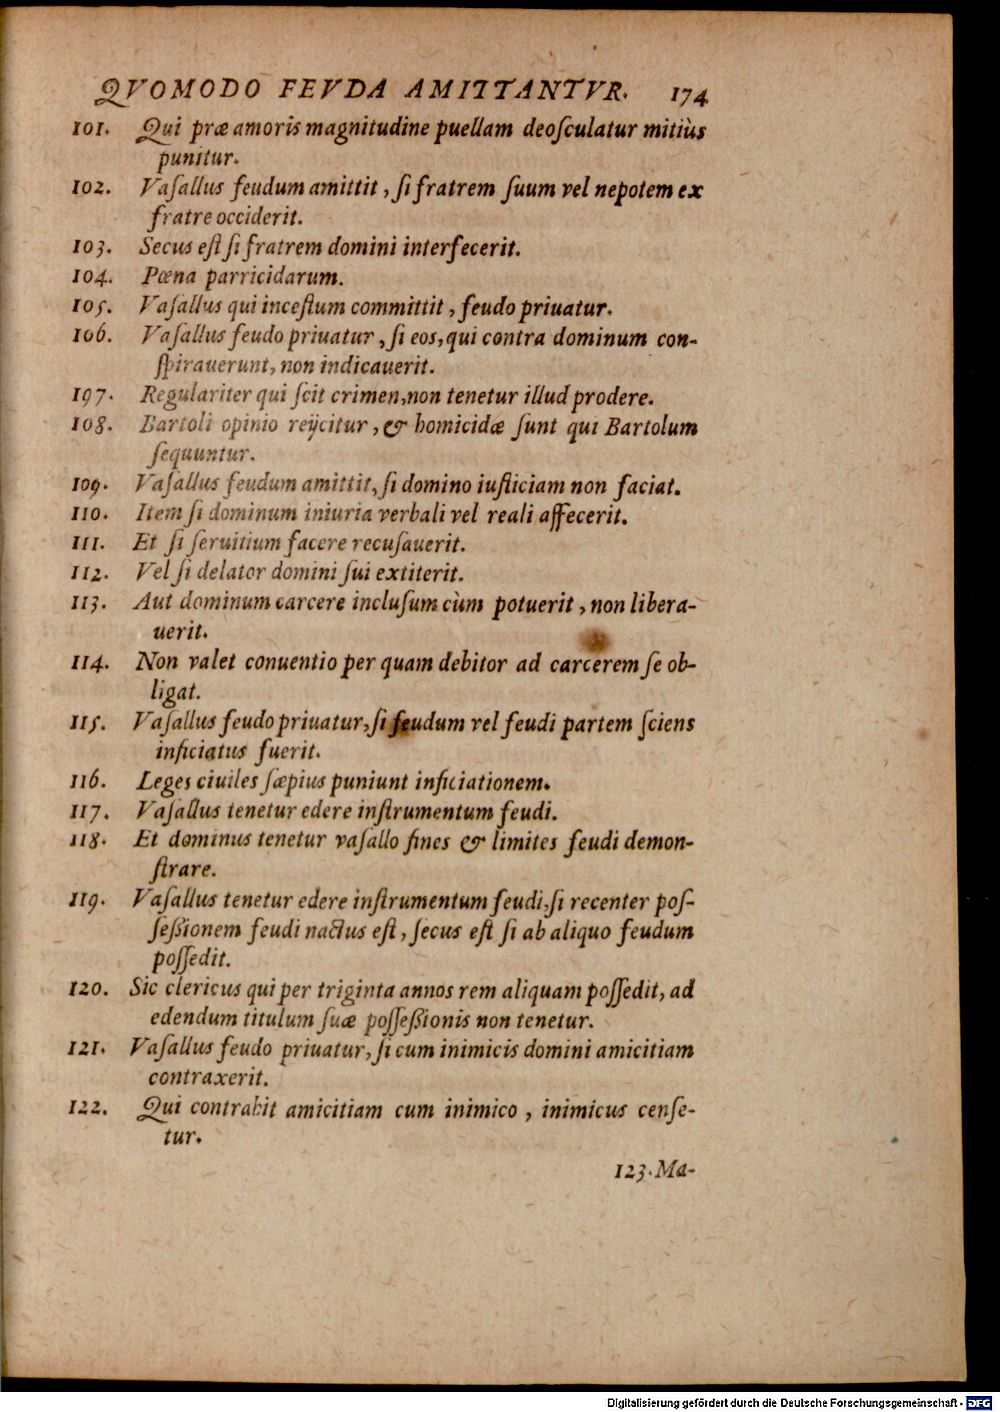 QVOMODO FEVDA AMITTANTVR. 174
101. Qui præ amoris magnitudine puellam deoſculatur mitiùs
punitur.
102. Vaſallus feudum amittit, ſi fratrem ſuum vel nepotem ex
fratre occiderit.
103. Secus eſt ſi fratrem domini interfecerit.
104. Pœna parricidarum.
105. Vaſallus qui inceſtum committit, feudo priuatur.
106. Vaſallus feudo priuatur, ſi eos, qui contra dominum con-
ſpirauerunt, non indicauerit.
197. Regulariter qui ſcit crimen, non tenetur illud prodere.
108. Bartoli opinio reijcitur, & homicidæ ſunt qui Bartolum
ſequuntur.
109. Vaſallus feudum amittit, ſi domino iuſticiam non faciat.
110. Item ſi dominum iniuria verbali vel reali affecerit.
111. Et ſi ſeruitium facere recuſauerit.
112. Vel ſi delator domini ſui extiterit.
113. Aut dominum carcere incluſum cùm potuerit, non libera-
uerit.
114. Non valet conuentio per quam debitor ad carcerem ſe ob-
ligat.
115. Vaſallus feudo priuatur, ſi feudum vel feudi partem ſciens
inficiatus fuerit.
116. Leges ciuiles ſæpius puniunt inficiationem.
117. Vaſallus tenetur edere inſtrumentum feudi.
118. Et dominus tenetur vaſallo fines & limites feudi demon-
ſtrare.
119. Vaſallus tenetur edere inſtrumentum feudi, ſi recenter poſ-
ſeßionem feudi nactus eſt, ſecus eſt ſi ab aliquo feudum
poſſedit.
120. Sic clericus qui per triginta annos rem aliquam poſſedit, ad
edendum titulum ſuæ poſſeßionis non tenetur.
121. Vaſallus feudo priuatur, ſi cum inimicis domini amicitiam
contraxerit.
122. Qui contrahit amicitiam cum inimico, inimicus cenſe-
tur.
123. Ma-
Digitalisierung gefördert durch die Deutsche Forschungsgemeinschaft - DFG